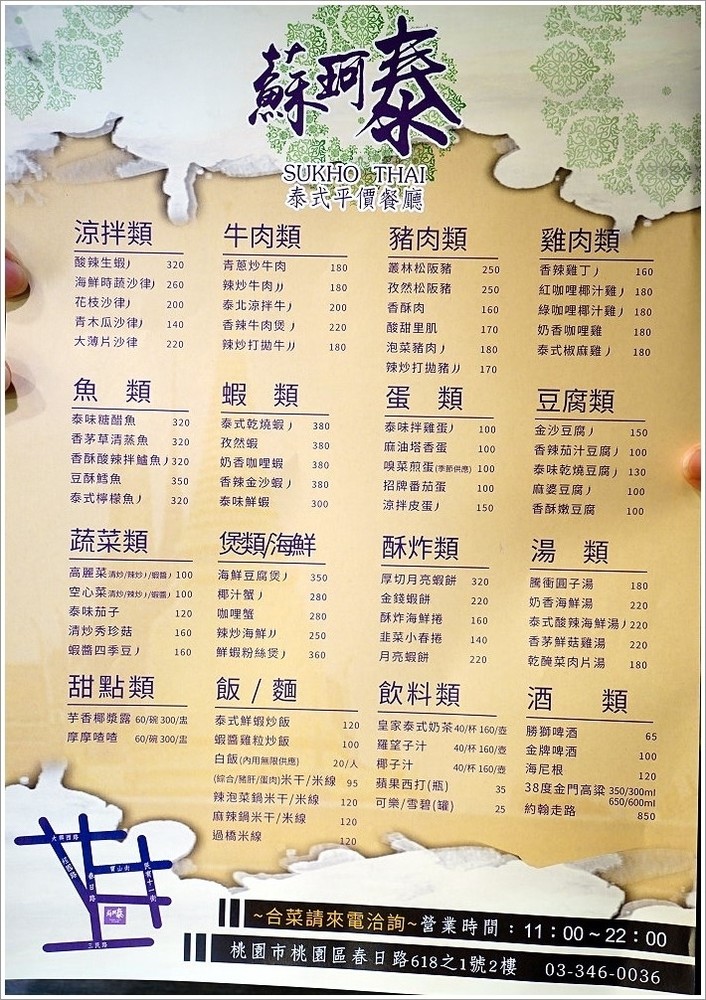 蘇珂泰
SUKHO THAI
泰式平價餐廳
涼拌類
酸辣生蝦丿 320
海鮮時蔬沙律丿 260
花枝沙律丿 200
青木瓜沙律丿 140
大薄片沙律 220
牛肉類
青蔥炒牛肉 180
辣炒牛肉丿丿 180
泰北涼拌牛丿 200
香辣牛肉煲丿 220
辣炒打拋牛丿丿 180
豬肉類
叢林松阪豬 250
孜然松阪豬 250
香酥肉 160
酸甜里肌 170
泡菜豬肉丿 180
辣炒打拋豬丿丿 170
雞肉類
香辣雞丁丿 160
紅咖哩椰汁雞丿 180
綠咖哩椰汁雞丿 180
奶香咖哩雞 180
泰式椒麻雞丿 180
魚 類
泰味糖醋魚 320
香茅草清蒸魚 320
香酥酸辣拌鱸魚丿 320
豆酥鱈魚 350
泰式檸檬魚丿 320
蝦 類
泰式乾燒蝦丿 380
孜然蝦 380
奶香咖哩蝦 380
香辣金沙蝦丿 380
泰味鮮蝦 300
蛋 類
泰味拌雞蛋丿 100
麻油塔香蛋 100
嗅菜煎蛋(季節供應) 100
招牌番茄蛋 100
涼拌皮蛋丿 150
豆腐類
金沙豆腐丿 150
香辣茄汁豆腐丿 100
泰味乾燒豆腐丿 130
麻婆豆腐丿 100
香酥嫩豆腐 100
蔬菜類
高麗菜清炒/辣炒丿/蝦醬丿 100
空心菜清炒/辣炒丿/蝦醬丿 100
泰味茄子 120
清炒秀珍菇 160
蝦醬四季豆丿 160
煲類/海鮮
海鮮豆腐煲丿 350
椰汁蟹丿 280
咖哩蟹 280
辣炒海鮮丿丿 250
鮮蝦粉絲煲丿 360
酥炸類
厚切月亮蝦餅 320
金錢蝦餅 220
酥炸海鮮捲 160
韭菜小春捲 140
月亮蝦餅 220
湯 類
騰衝圓子湯 180
奶香海鮮湯 220
泰式酸辣海鮮湯丿 220
香茅鮮菇雞湯 220
乾醃菜肉片湯 180
甜點類
芋香椰漿露 60/碗 300/盅
摩摩喳喳 60/碗 300/盅
飯 / 麵
泰式鮮蝦炒飯 120
蝦醬雞粒炒飯 100
白飯(內用無限供應) 20/人
(綜合/豬肝/蛋肉)米干/米線 95
辣泡菜鍋米干/米線 120
麻辣鍋米干/米線 120
過橋米線 120
飲料類
皇家泰式奶茶 40/杯 160/壺
羅望子汁 40/杯 160/壺
椰子汁 40/杯 160/壺
蘋果西打(瓶) 35
可樂/雪碧(罐) 25
酒 類
勝獅啤酒 65
金牌啤酒 100
海尼根 120
38度金門高粱 350/300ml
650/600ml
約翰走路 850
大興西路
春日路
寶山街
民有十一街
蘇珂泰
三民路
~合菜請來電洽詢~營業時間：11：00～22：00
桃園市桃園區春日路618之1號2樓 03-346-0036